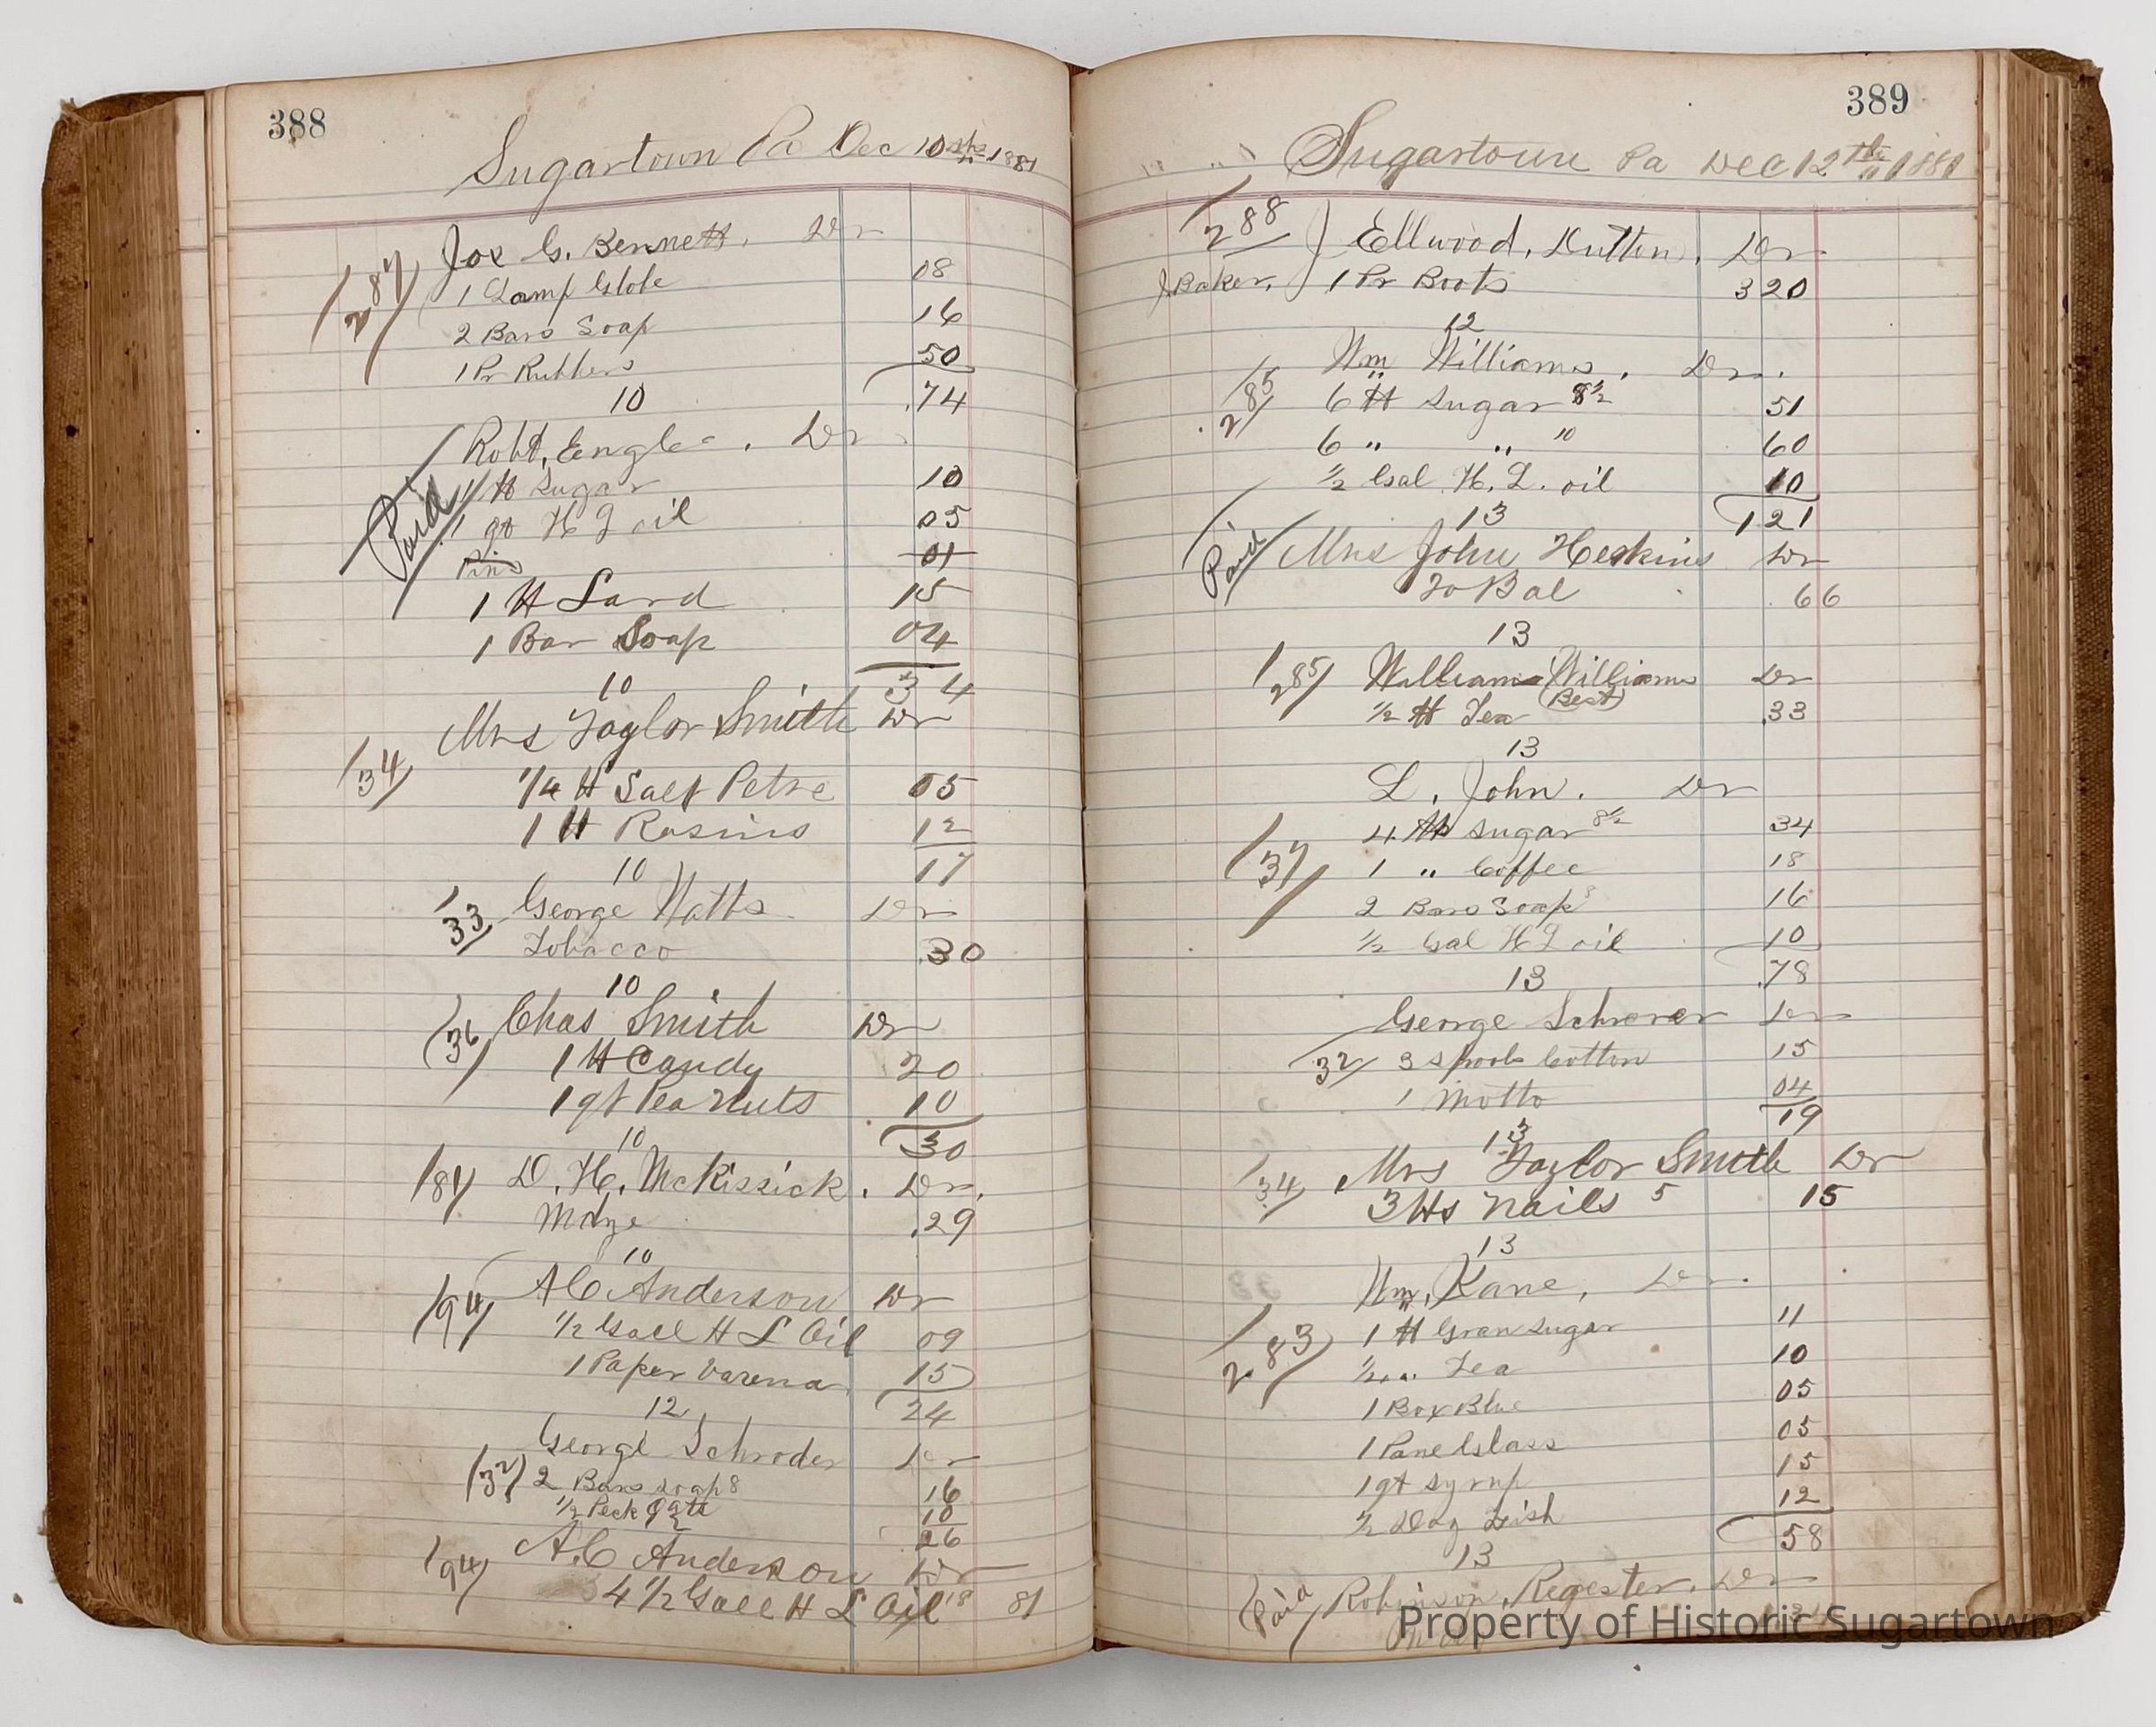 388
Sugartown Pa Dec 10th 1881
287 Jos G. Bennett. Dr
1 Lamp Globe 08
2 Bars Soap 16
1 Pr Rubbers 50
10 .74
Robt. Engle. Dr
Paid 1 # Sugar 10
1 qt H L oil 05
Pins 01
1 # Lard 15
1 Bar Soap 04
10 34
Mrs Taylor Smith Dr
34 1/4 # Salt Petre 05
1 # Rasins 12
10 17
33 George Watts Dr
Tobacco 30
10
36 Chas Smith Dr
1 # Candy 20
1 qt Pea Nuts 10
10 30
184 D. H. McKissick. Dr.
Mdze .29
10
194 A C Anderson Dr
1/2 Gall H L Oil 09
1 Paper Varena 15
12 24
George Schroder Dr
32 2 Bars soap 8 16
1/2 Peck 10
12 26
194 A. C Anderson Dr
4 1/2 Gall H L Oil 18 81
389
" " Sugartown Pa Dec 12th 1881
288 Ellwood. Dutton. Dr
J Baker. 1 Pr Boots 3 20
12
Wm Williams. Dr.
285 6 # Sugar 8 1/2 51
6 " " 10 60
1/2 Gal. H. L. oil 10
13 1 21
Paid Mrs John Heskins Dr
To Bal 66
13
285 William Williams Dr
1/2 # Tea (Best) .33
13
L. John. Dr
4 # sugar 8 1/2 34
37 1 " Coffee 18
2 Bars Soap 8 16
1/2 Gal H L oil 10
13 .78
George Schrorer Dr
32 3 spools Cotton 15
1 Motto 04
19
13
34 Mrs Taylor Smith Dr
3 #s Nails 5 15
13
Wm. Kane, Dr.
283 1 # Gran Sugar 11
1/2 " Tea 10
1 Box Blue 05
1 Pane Glass 05
1 qt Syrup 15
1/2 Doz Fish 12
13 58
Paid Robinson. Regester. Dr
Property of Historic Sugartown